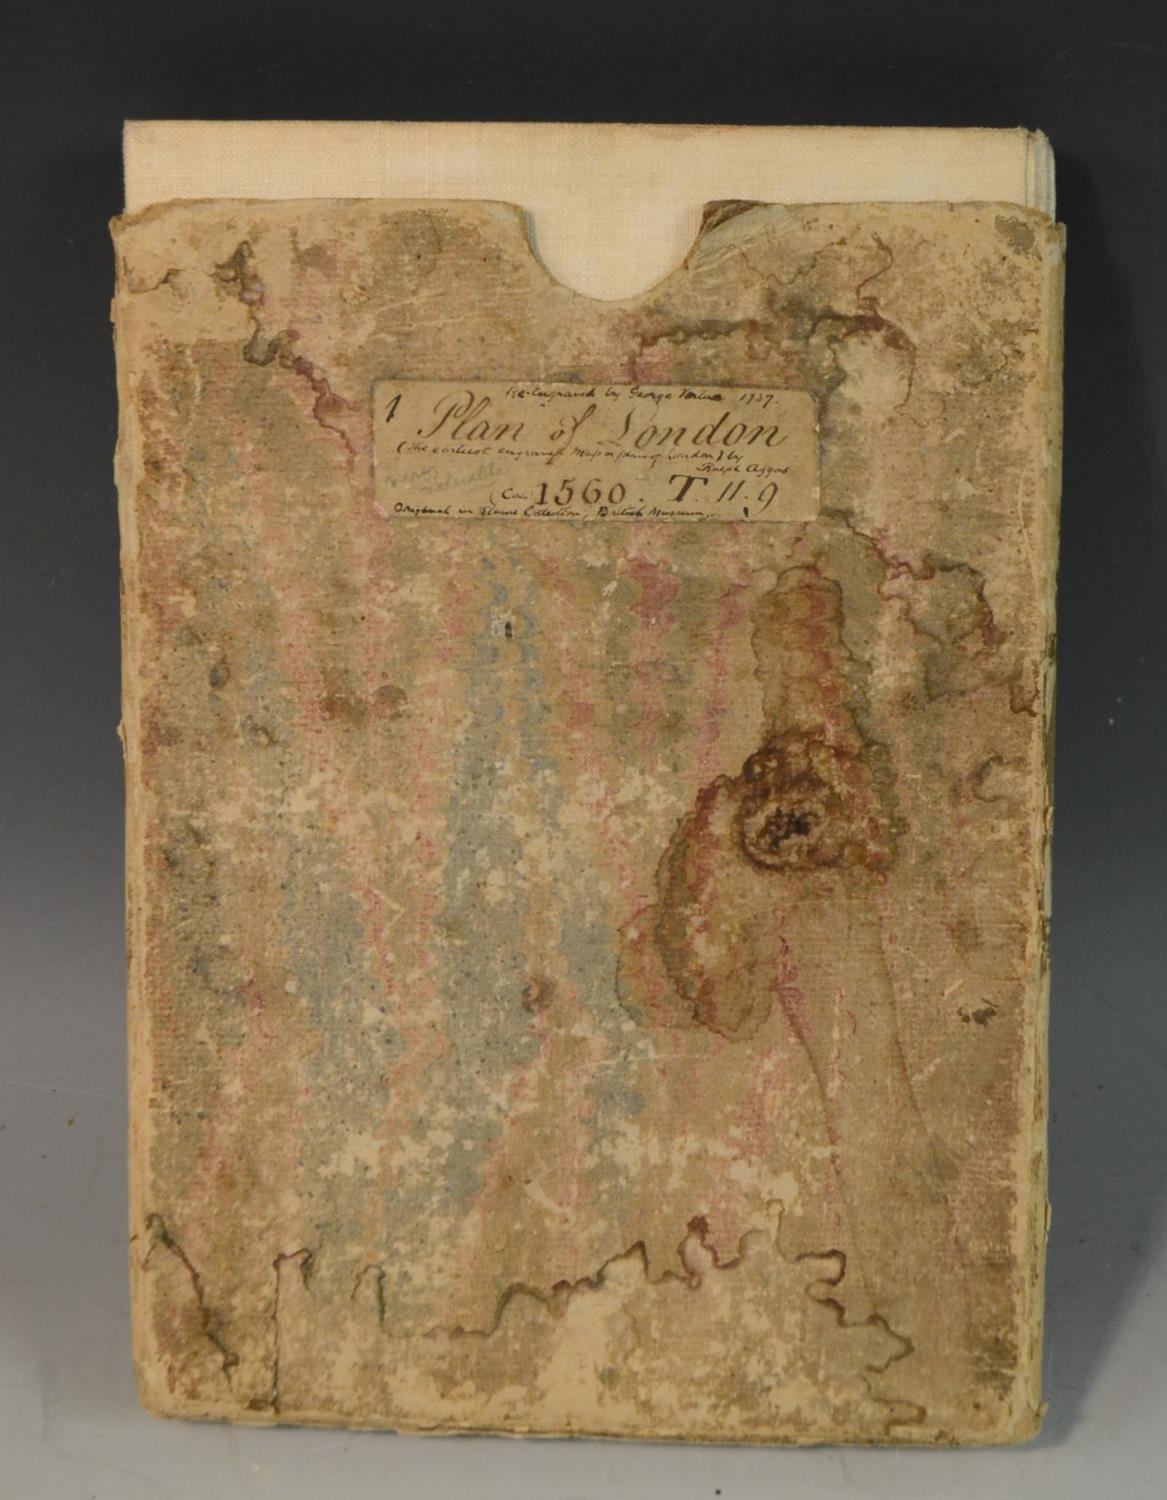 Re-Engraved by George Vertue 1737.
1 Plan of London
(The earliest engraved Map or plan of London) by
Ralph Aggas
very
valuable
(Ca. 1560. T. 11. 9
Original in Sloane Collection, British Museum.